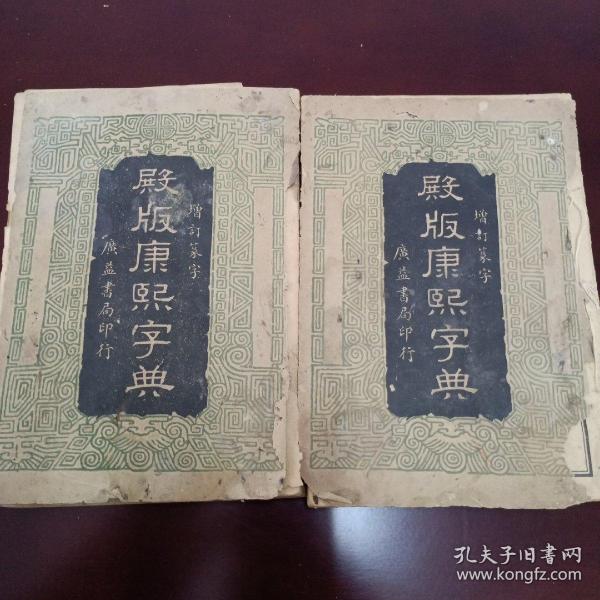 增訂篆字
殿版康熙字典
廣益書局印行
增訂篆字
殿版康熙字典
廣益書局印行
孔夫子旧书网
www.kongfz.com